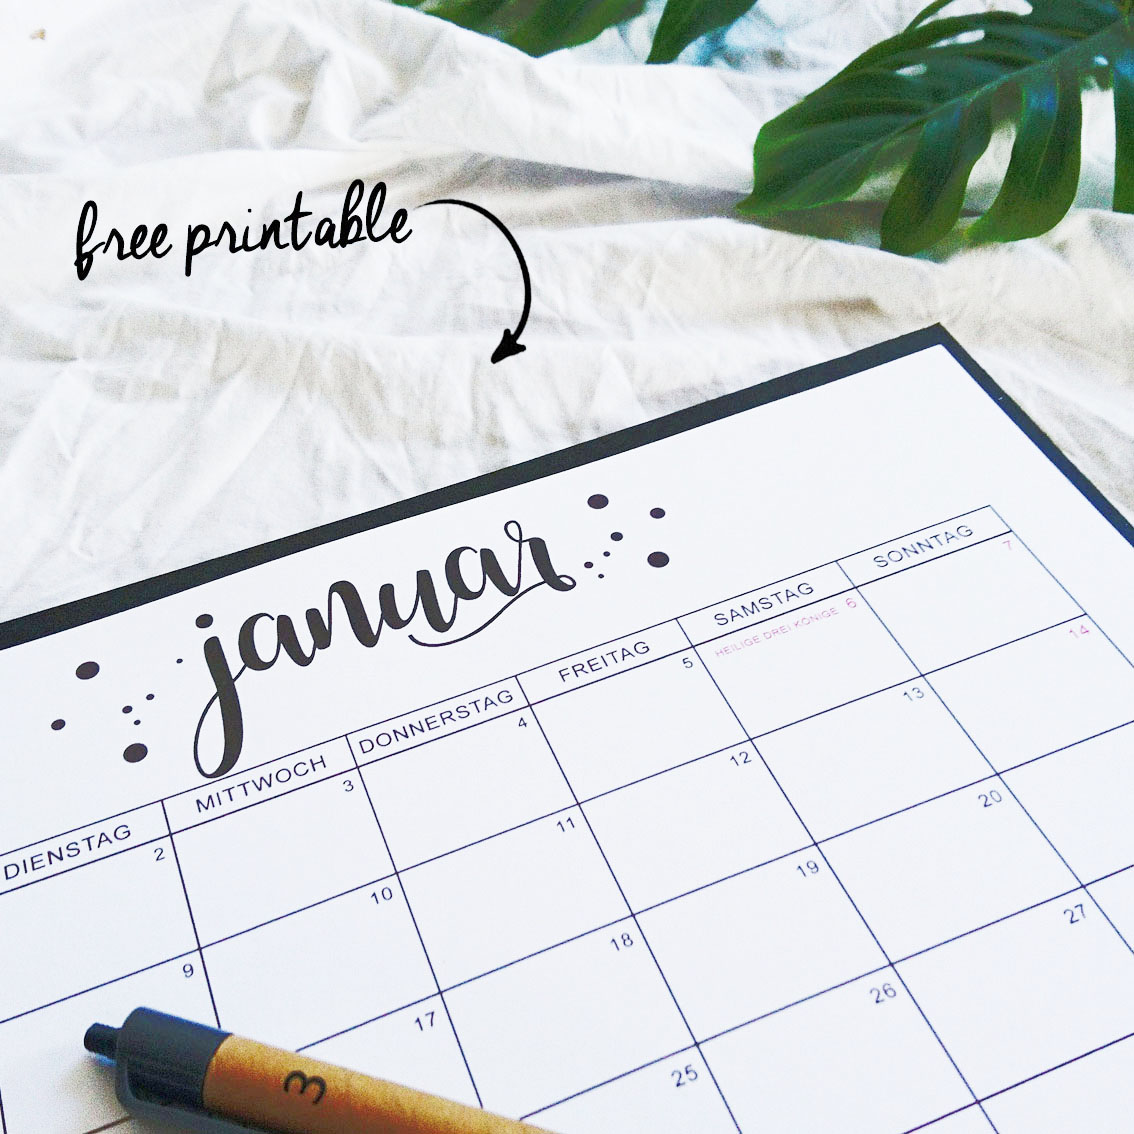 free printable
januar
DIENSTAG MITTWOCH DONNERSTAG FREITAG SAMSTAG SONNTAG
2 3 4 5 HEILIGE DREI KÖNIGE 6 7
9 10 11 12 13 14
17 18 19 20
25 26 27
3